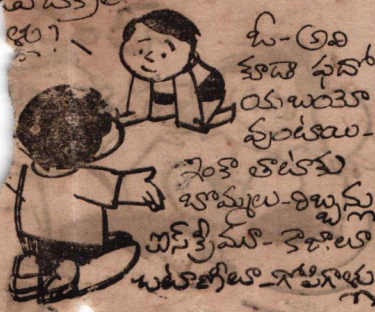 ళ్లు?
ఓ - అవి
కూడా పదో
యాబయో
వుంటాయి -
ఇంకా తాటాకు
బొమ్మలు - రిబ్బన్లు
ఐస్‌క్రీమూ - కాజాలూ
బటాణీలూ - గోపిగాళ్లు